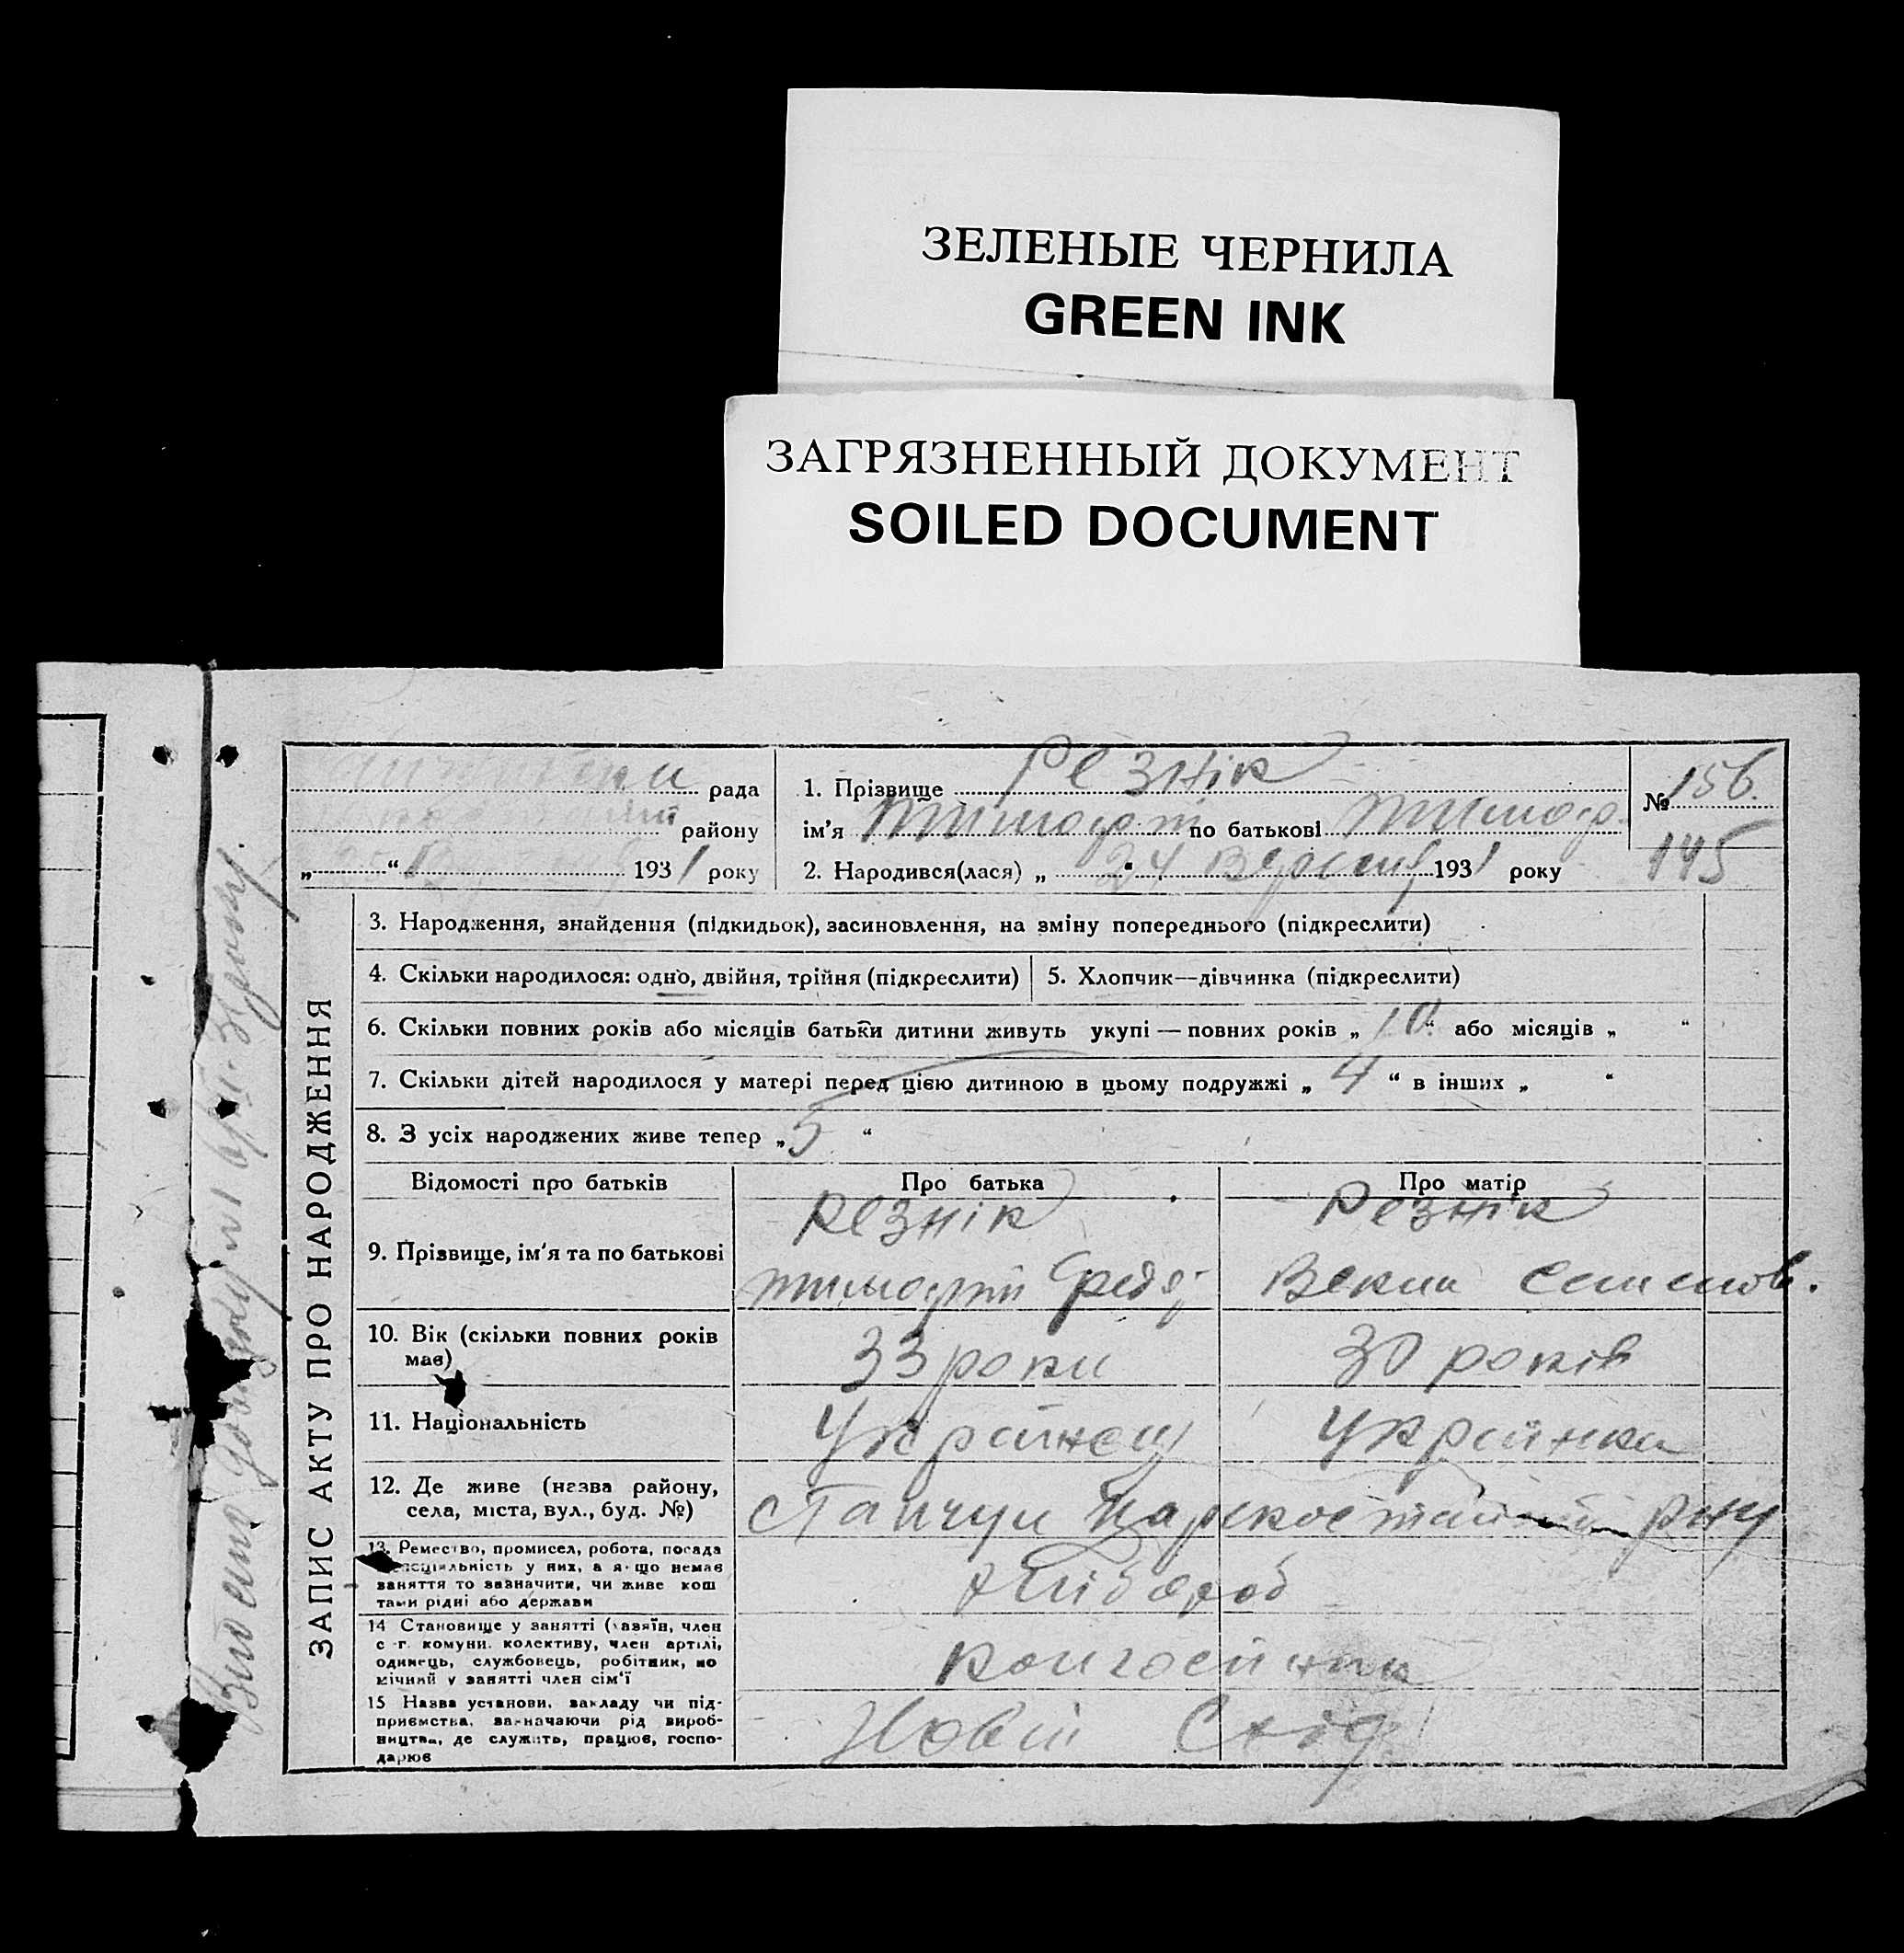 ЗЕЛЕНЫЕ ЧЕРНИЛА
GREEN INK
ЗАГРЯЗНЕННЫЙ ДОКУМЕНТ
SOILED DOCUMENT
рада
району
„ “ 1931 року
1. Прізвище Резнік
ім'я Тимофій по батькові Тимоф.
2. Народився(лася) „ 24 “ Вересня 1931 року
№ 156.
145
ЗАПИС АКТУ ПРО НАРОДЖЕННЯ
3. Народження, знайдення (підкидьок), засиновлення, на зміну попереднього (підкреслити)
4. Скільки народилося: одно, двійня, трійня (підкреслити)
5. Хлопчик—дівчинка (підкреслити)
6. Скільки повних років або місяців батьки дитини живуть укупі — повних років „ 10 “ або місяців „ “
7. Скільки дітей народилося у матері перед цією дитиною в цьому подружжі „ 4 “ в інших „ “
8. З усіх народжених живе тепер „ 5 “
Відомості про батьків
Про батька
Про матір
9. Прізвище, ім'я та по батькові
Резнік
Тимофій Федор
Резнік
10. Вік (скільки повних років
має)
33 роки
30 років
11. Національність
Українец
Українка
12. Де живе (назва району,
села, міста, вул., буд. №)
р-ну
13. Ремество, промисел, робота, посада
спеціяльність у них, а якщо немає
заняття то зазначити, чи живе кош
тами рідні або держави
Хлібороб
14 Становище у занятті (хазяїн, член
с-г. комуни, колективу, член артілі,
одинець, службовець, робітник, по
мічний у занятті член сім'ї
колгоспник
15 Назва установи, закладу чи під-
приємства, зазначаючи рід вироб-
ництва, де служить, працює, госпо-
дарює
Новий Схід